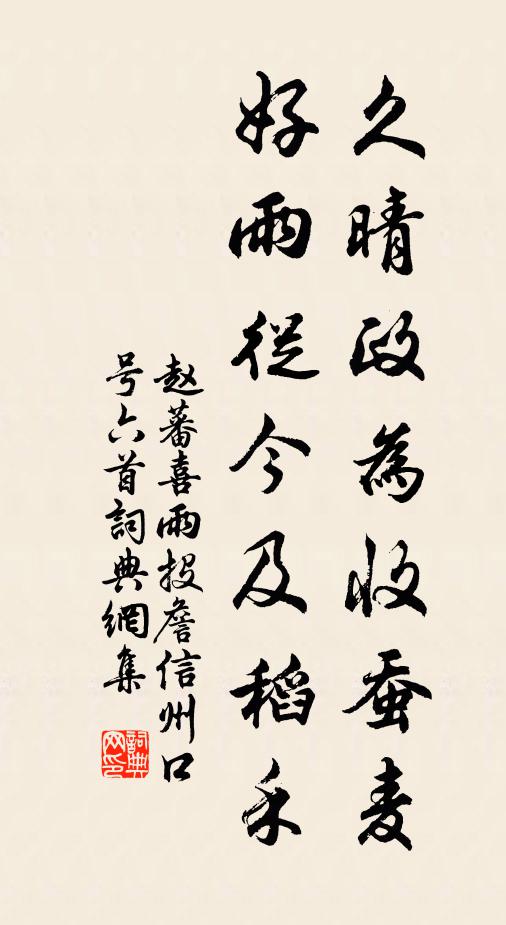 久晴政為收蚕麦
好雨從今及稻禾
赵蕃喜雨投詹信州口
号六首詞典網集
詞典
网印